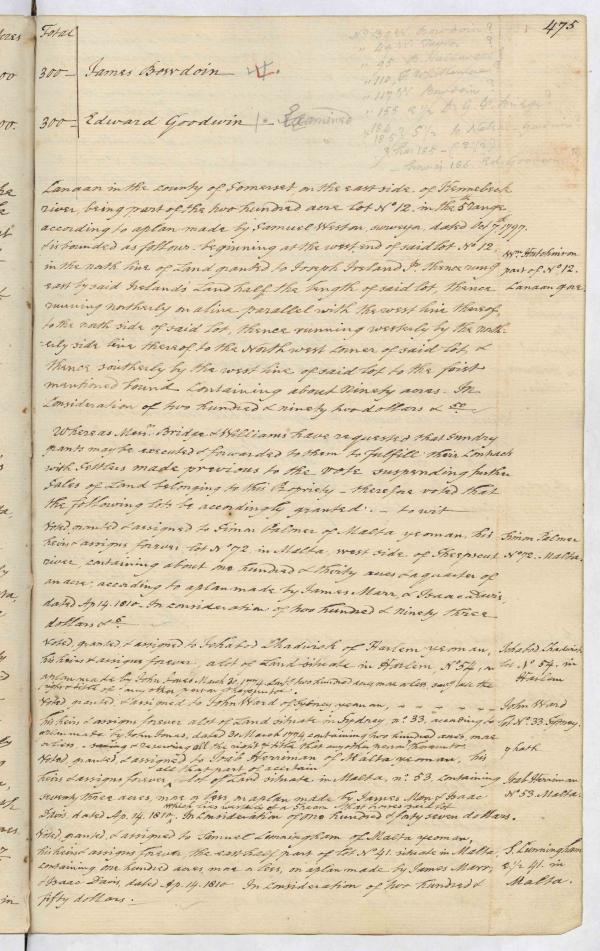 475
Total
300 — James Bowdoin
300 — Edward Goodwin — Examined
Canaan in the County of Somerset on the east side of Kennebeck
river, being part of the two hundred acre lot No 12. in the 5th range
according to a plan made by Samuel Weston, surveyor, dated Oct 7th 1797.
& is bounded as follows. beginning at the west end of said lot No 12.
in the north line of Land granted to Joseph Ireland Jr. thence rung
east by said Irelands Land half the length of said lot, thence
running northerly on a line parallel with the west line thereof,
to the north side of said lot, thence running westerly by the north-
erly side line thereof to the North west Corner of said lot, &
thence southerly by the west line of said lot to the first
mentioned bound. Containing about Ninety acres. In
Consideration of two hundred & ninety two dollars & 50
Wm. Hutchinson
part of No 12.
Canaan
Whereas Messrs. Bridge & Williams have requested that Sundry
grants may be executed & forwarded to them to fulfill their Contracts
with Settlers made previous to the vote suspending further
Sales of Land belonging to this Propriety — therefore voted that
the following lots be accordingly granted. — to wit
Voted, granted & assigned to Simon Palmer of Malta yeoman, his
heirs & assigns forever lot No 72. in Malta, west side of Sheepscut
river, containing about one hundred & thirty acres & a quarter of
an acre, according to a plan made by James Marr, & Isaac Davis,
dated Ap. 14. 1810. In consideration of two hundred & ninety three
dollars &
Simon Palmer
No 72. Malta.
Voted, granted & assigned to Ichabod Chadwick of Harlem yeoman,
his heirs & assigns forever, a lot of Land situate in Harlem No 54, on
a plan made by John Jones March 30, 1774 two hundred acres more or less,
right & title of any other person
Ichabod Chadwick
lot No 54. in
Harlem
Voted, granted & assigned to John Ward of Sydney yeoman,
his heirs & assigns forever a lot of Land situate in Sydney no. 33. according to
a plan made by John Jones, dated 30 March 1774 containing two hundred acres, more
or less. — saving & reserving all the right & title that any other person
John Ward
lot No 33 Sydney.
hath
Voted, granted & assigned to Joab Herriman of Malta yeoman, his
all that part of a certain
heirs & assigns forever, lot of Land situate in Malta, no. 53. containing
seventy three acres, more or less, on a plan made by James Marr & Isaac
which lies
Davis, dated Ap. 14. 1810. In Consideration of one hundred & forty seven dollars.
Joab Herriman
No 53. Malta.
Voted, granted, & assigned to Samuel Cunningham of Malta yeoman,
his heirs & assigns forever, the east half part of lot No 41. situate in Malta,
containing one hundred acres more or less, on a plan made by James Marr,
& Isaac Davis, dated Ap. 14. 1810 In consideration of two hundred &
fifty dollars. —
S. Cunningham
E 1/2 41. in
Malta.